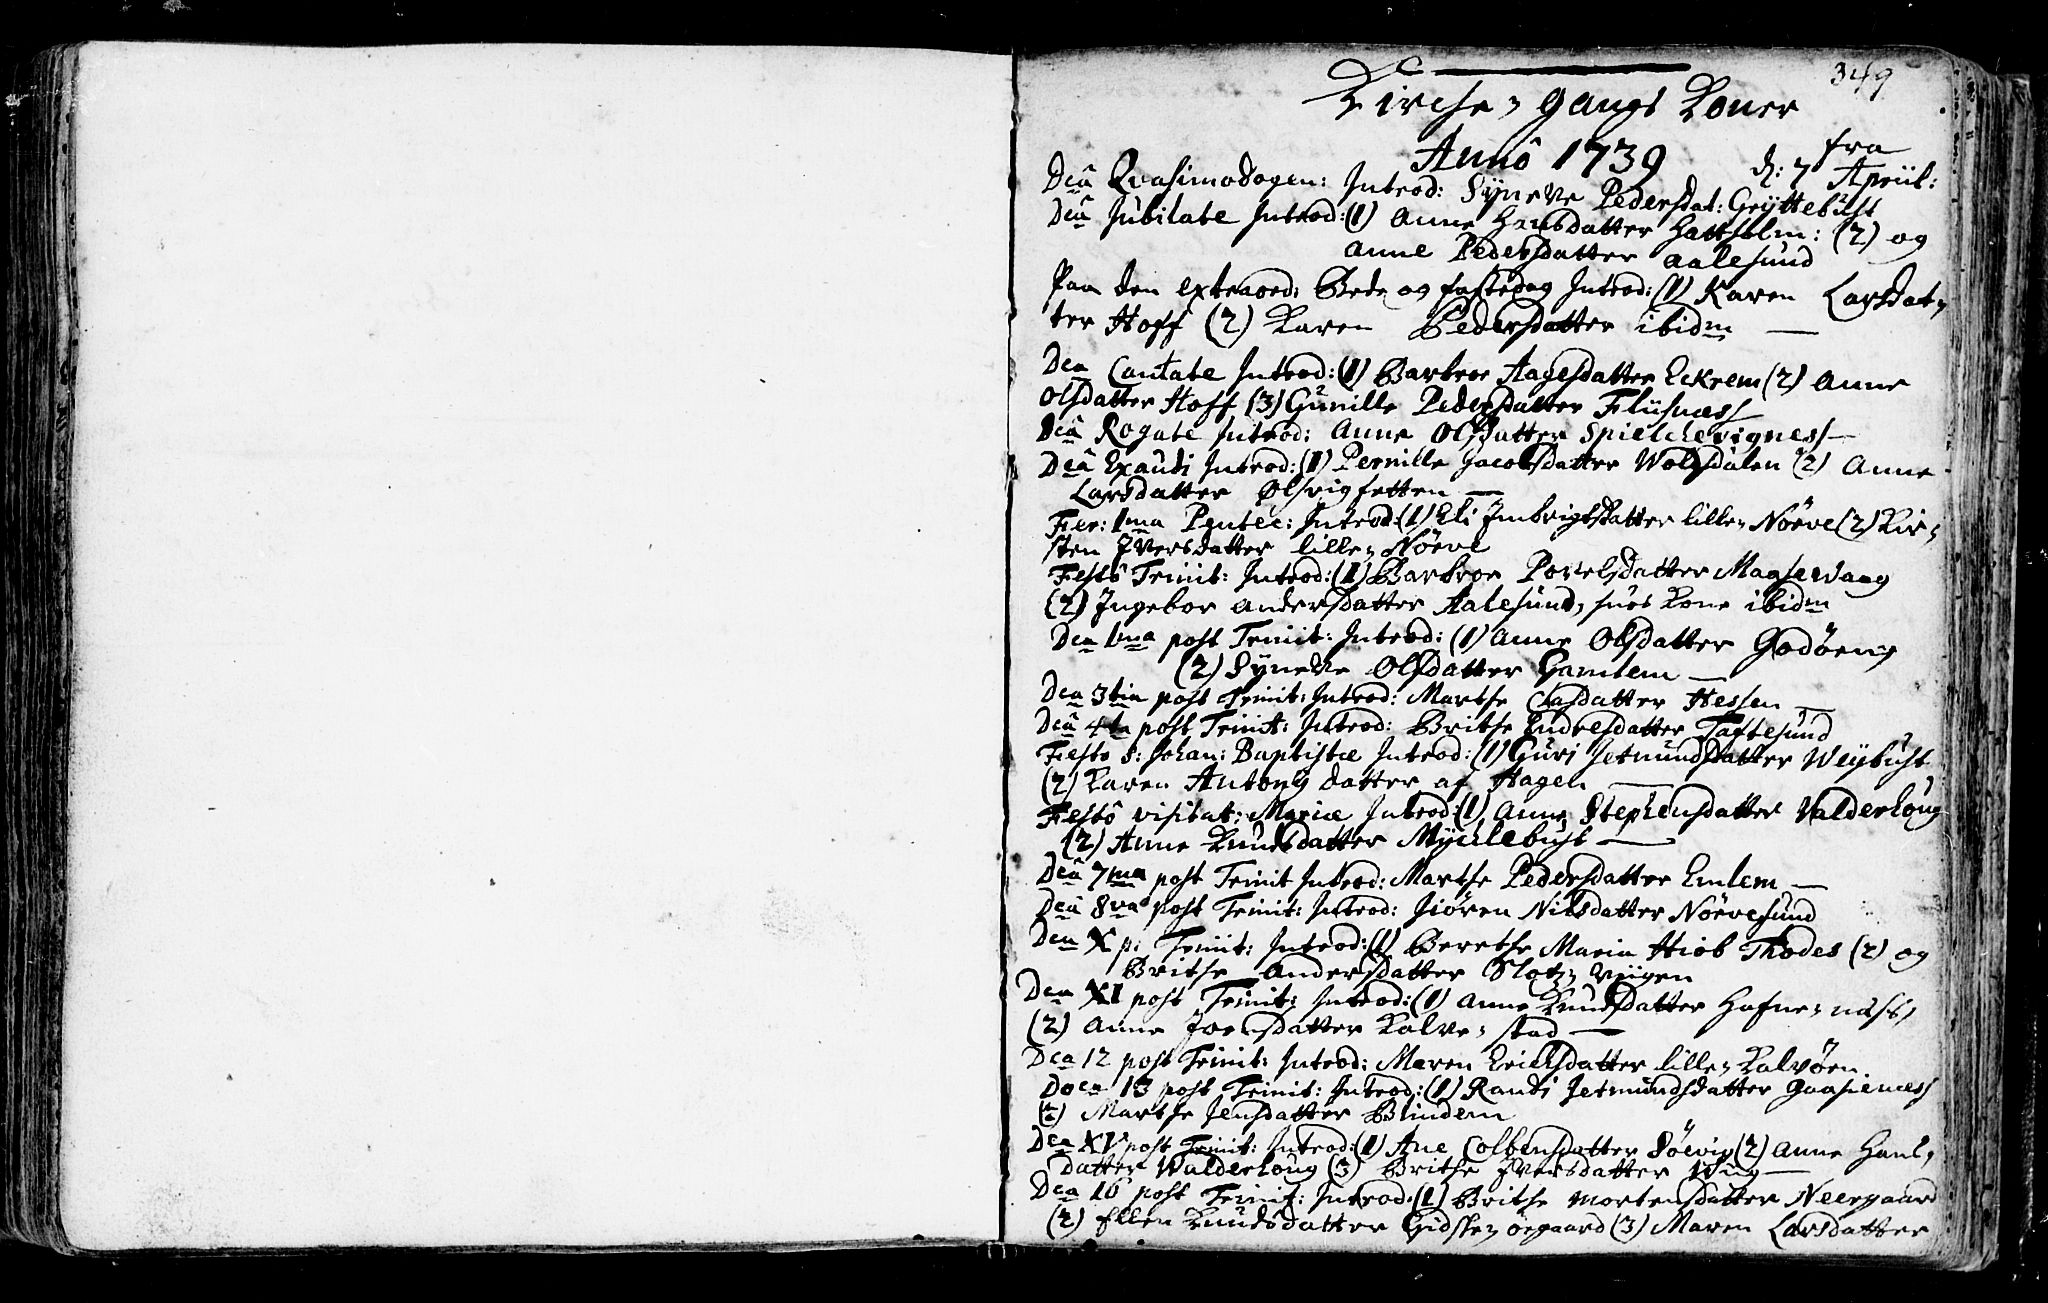 349
Kirche-gangs Koner
Annô 1739 fra d: 7 Apriil:
Dcâ Qvasimodogen: Introd: Syneve Pedersdat: Gryttebust
Dcâ Jubilate Introd: (1) Anne Hansdatter Hattholm: (2) og
Anne Pedersdatter Aalesund
Paa den extraord: Bede og fastedag Introd: (1) Karen Larsdat-
ter Hoff (2) Karen Pedersdatter ibidm
Dca Cantate Introd: (1) Barbroe Aagesdatter Eckrem (2) Anne
Olsdatter Hoff (3) Gunille Pedersdatter Fliisnæss
Dcâ Rogate Introd: Anne Olsdatter Spielchevigness
Dcâ Exaudi Introd: (1) Pernille Jacobsdatter Wolsdalen (2) Anne
Larsdatter Ølsvigsetten
Fer: 1ma Pentec: Introd: (1) Eli Imbrigtsdatter lille-Nörve (2) Kir-
sten Iversdatter lille-Nörve
Festô Trinit: Introd: (1) Barbroe Povelsdatter Magservaag
(2) Ingebor Andersdatter Aalesund, huus Kone ibidm
Dca 1ma post Trinit: Introd: (1) Anne Olsdatter Godöen,
(2) Syneve Olsdatter Gamlem
Dca 3tia post Trinit: Introd: Marthe Clasdatter Hessen
Dcâ 4ta post Trinit: Introd: Brithe Endresdatter Taftesund
Festo S: Johan: Baptistæ Introd: (1) Guri Jetmundsdatter Weybust
(2) Karen Antonys datter af Hagen
Festô visitat: Mariæ Introd: (1) Anne Stephensdatter Valderhoug
(2) Anne Knudsdatter Mychlebust
Dcâ 7ma post Trinit Introd: Marthe Pedersdatter Emlem
Dcâ 8va post Trinit: Introd: Jören Nilsdatter Nörvesund
Dca X p: Trinit: Introd: (1) Berethe Maria Hiob Thodes (2) og
Brithe Andersdatter Slotz-Viigen
Dca XI post Trinit: Introd: (1) Anne Knudsdatter Hafne-næss,
(2) Anne Joensdatter Kalve-stad
Dca 12 post Trinit: Introd: Maren Ericksdatter lille-Kalvöen
Doca 13 post Trinit: Introd: (1) Randi Jetmundsdatter Gaasenæss
(2) Marthe Jensdatter Blindem
Dca XV post Trinit: Introd: (1) Ane Colbensdatter Söevig (2) Anne Hans-
datter Walderhoug (3) Brithe Iversdatter
Dca 16 post Trinit: Introd: (1) Brithe Mortensdatter Neergaard
(2) Ellen Knudsdatter Gidske-öegaard (3) Maren Larsdatter